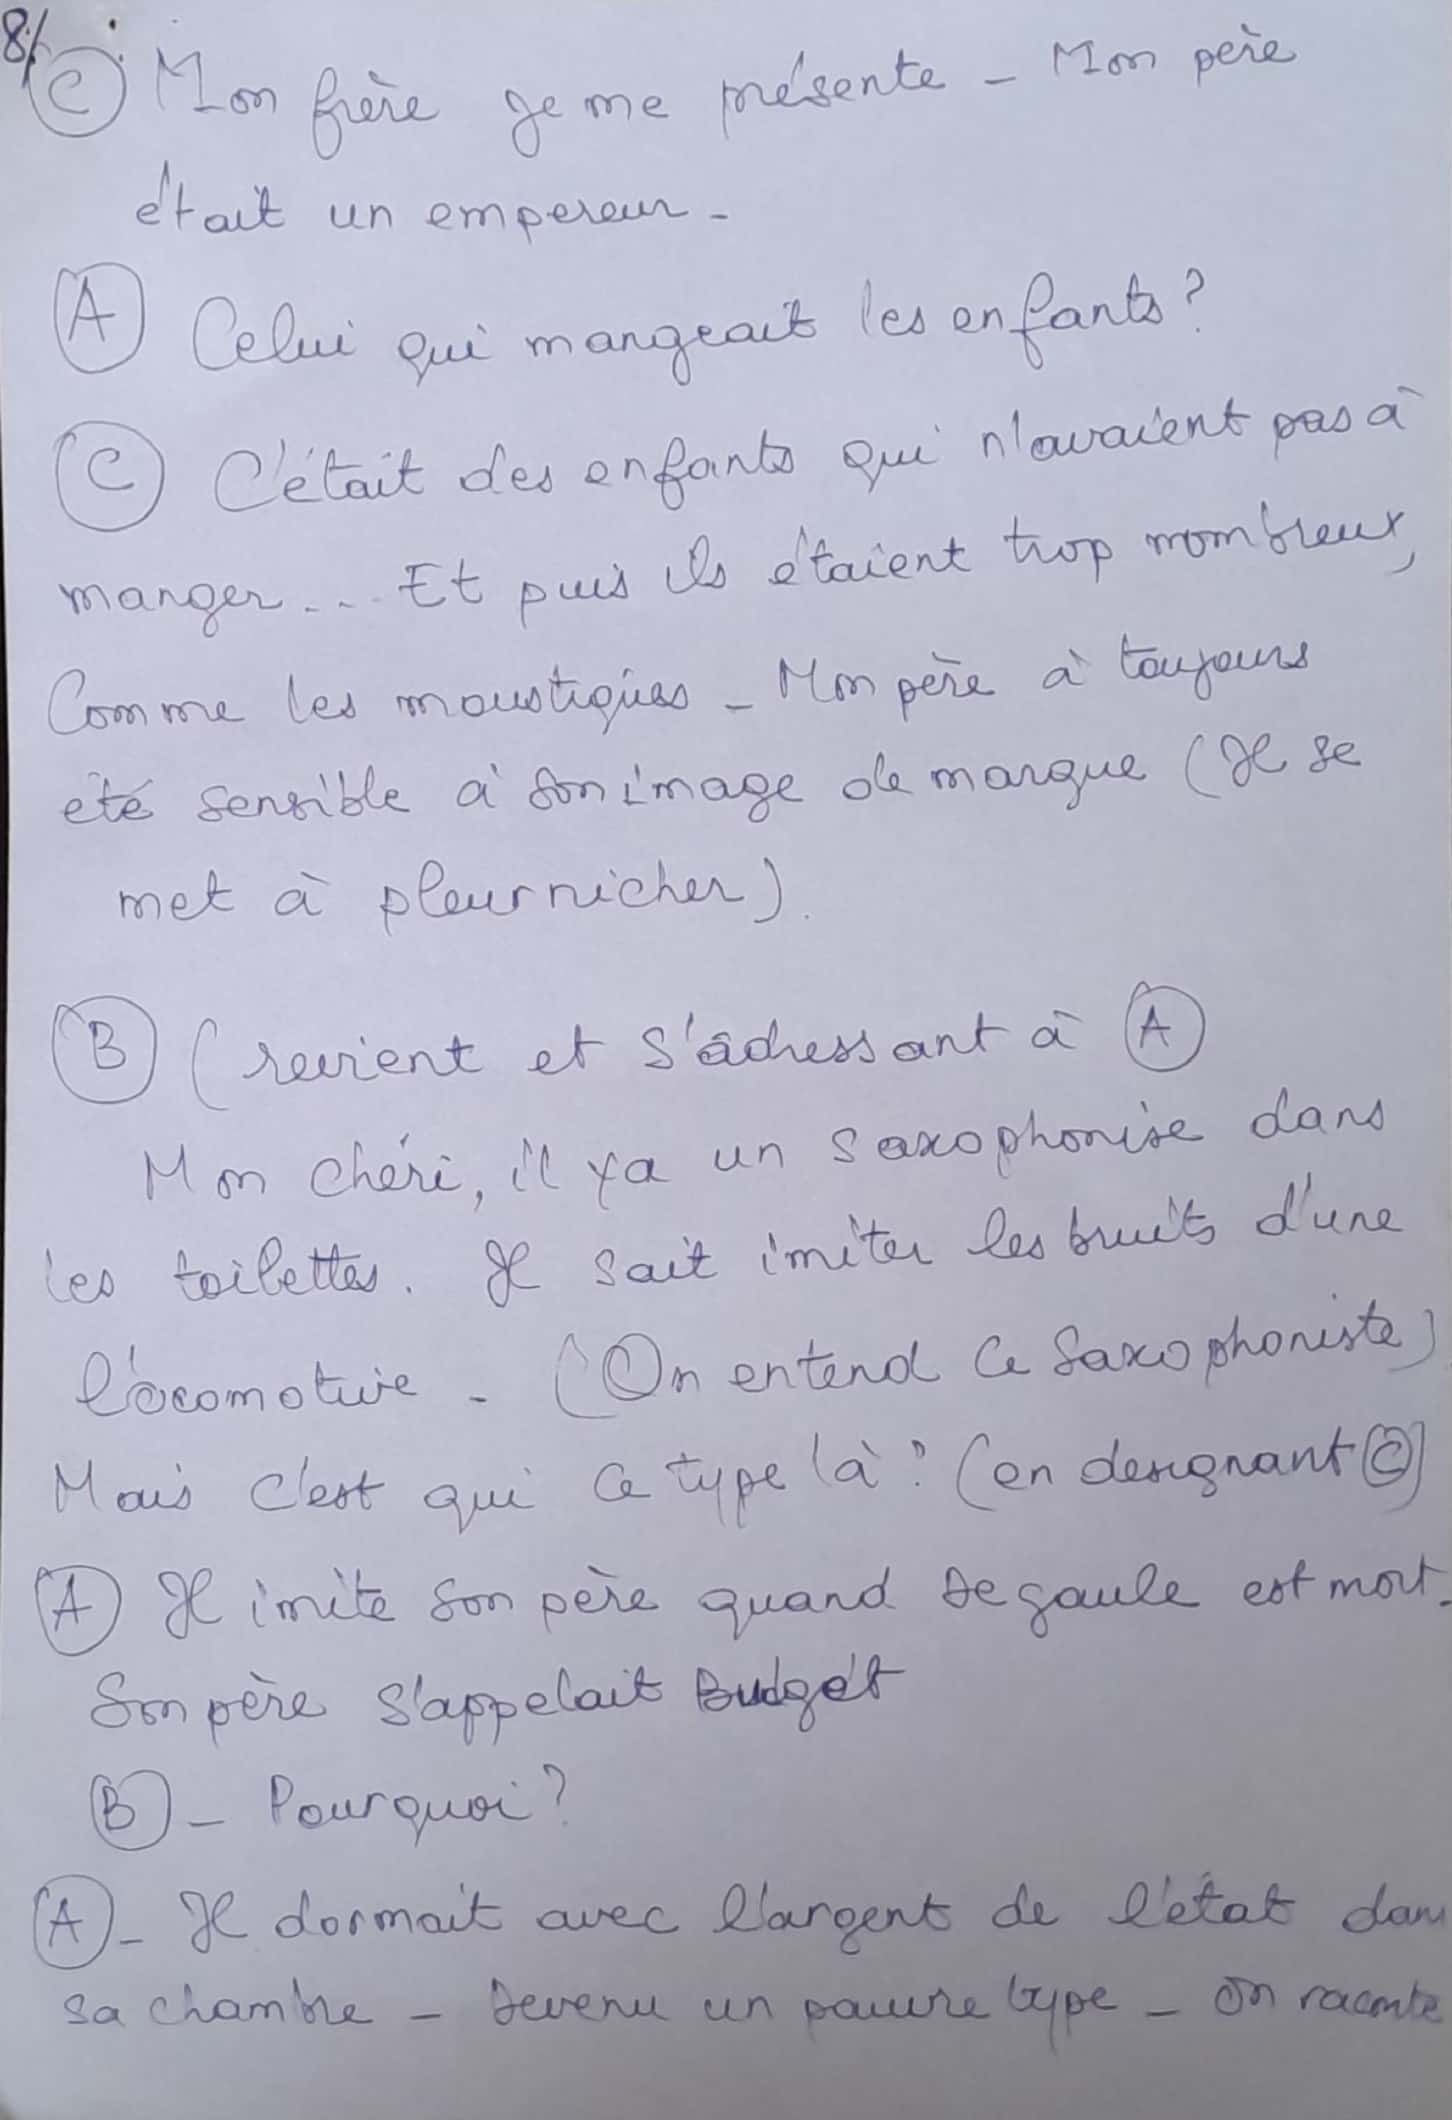 8/
(C) Mon frère je me présente - Mon père
était un empereur -
(A) Celui qui mangeait les enfants?
(C) C'était des enfants qui n'avaient pas à
manger... Et puis ils étaient trop nombreux,
Comme les moustiques - Mon père à toujours
été sensible à son image de marque (Il se
met à pleurnicher).
(B) (revient et s'âdressant à (A)
Mon chéri, il ya un saxophonise dans
les toilettes. Il sait imiter les bruits d'une
l'ocomotive - (On entend ce saxophoniste)
Mais c'est qui ce type là? (en designant (C))
(A) Il imite son père quand De gaule est mort.
Son père s'appelait Budget
(B) - Pourquoi?
(A) - Il dormait avec l'argent de l'état dans
sa chambre - Devenu un pauvre type - On raconte